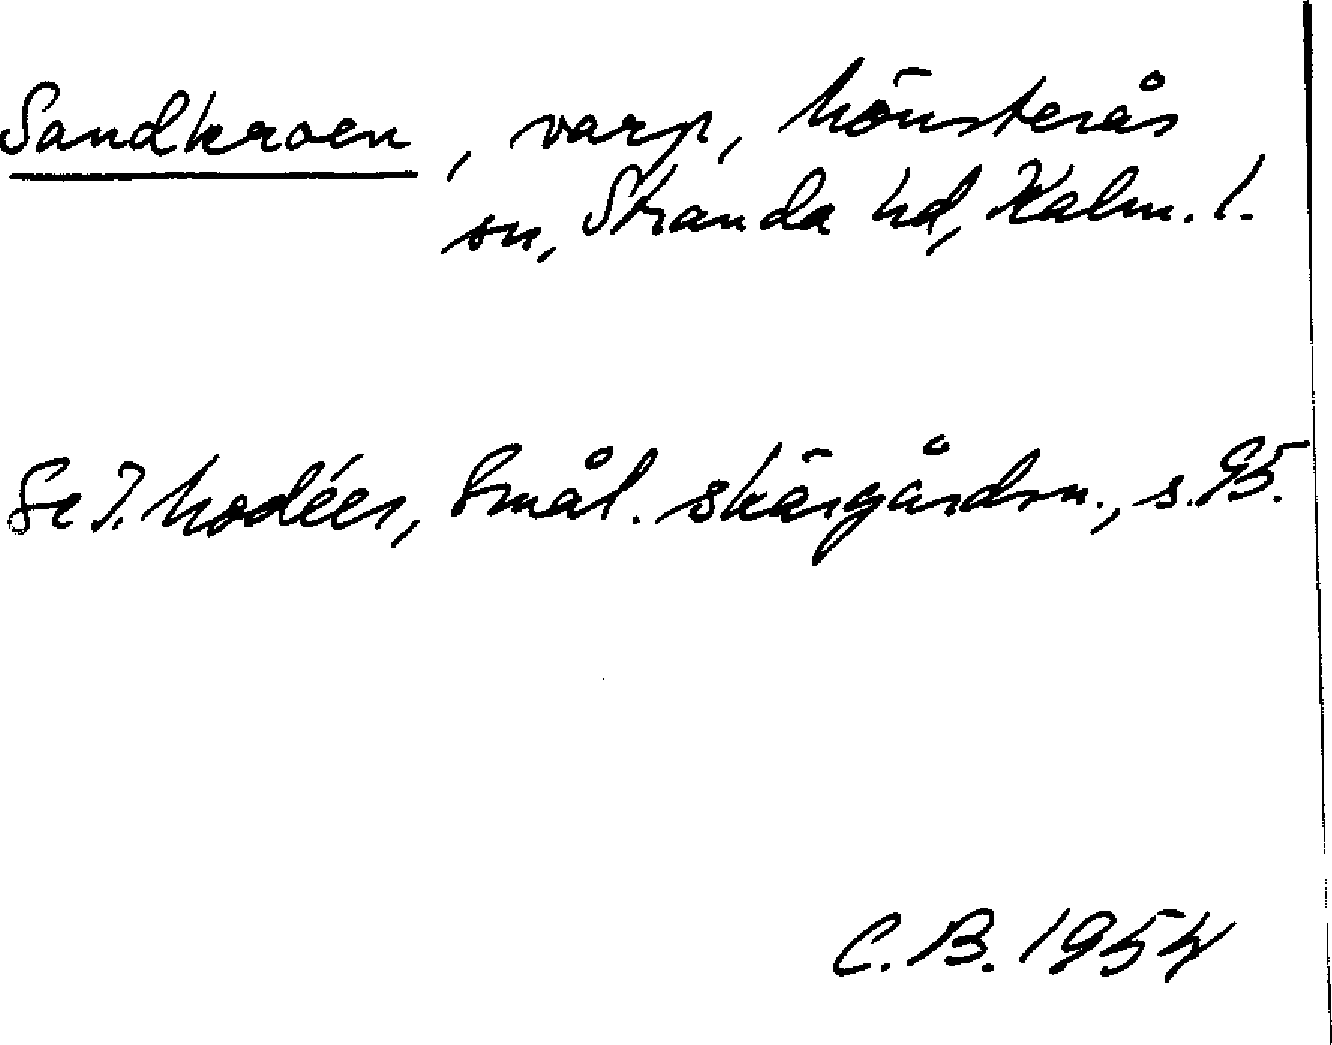 Sandkroen, varp, Mönsterås
sn, Stranda hd, Kalm. l.
Se I. Modéer, Smål. skärgårdsn., s. 95.
C. B. 1954